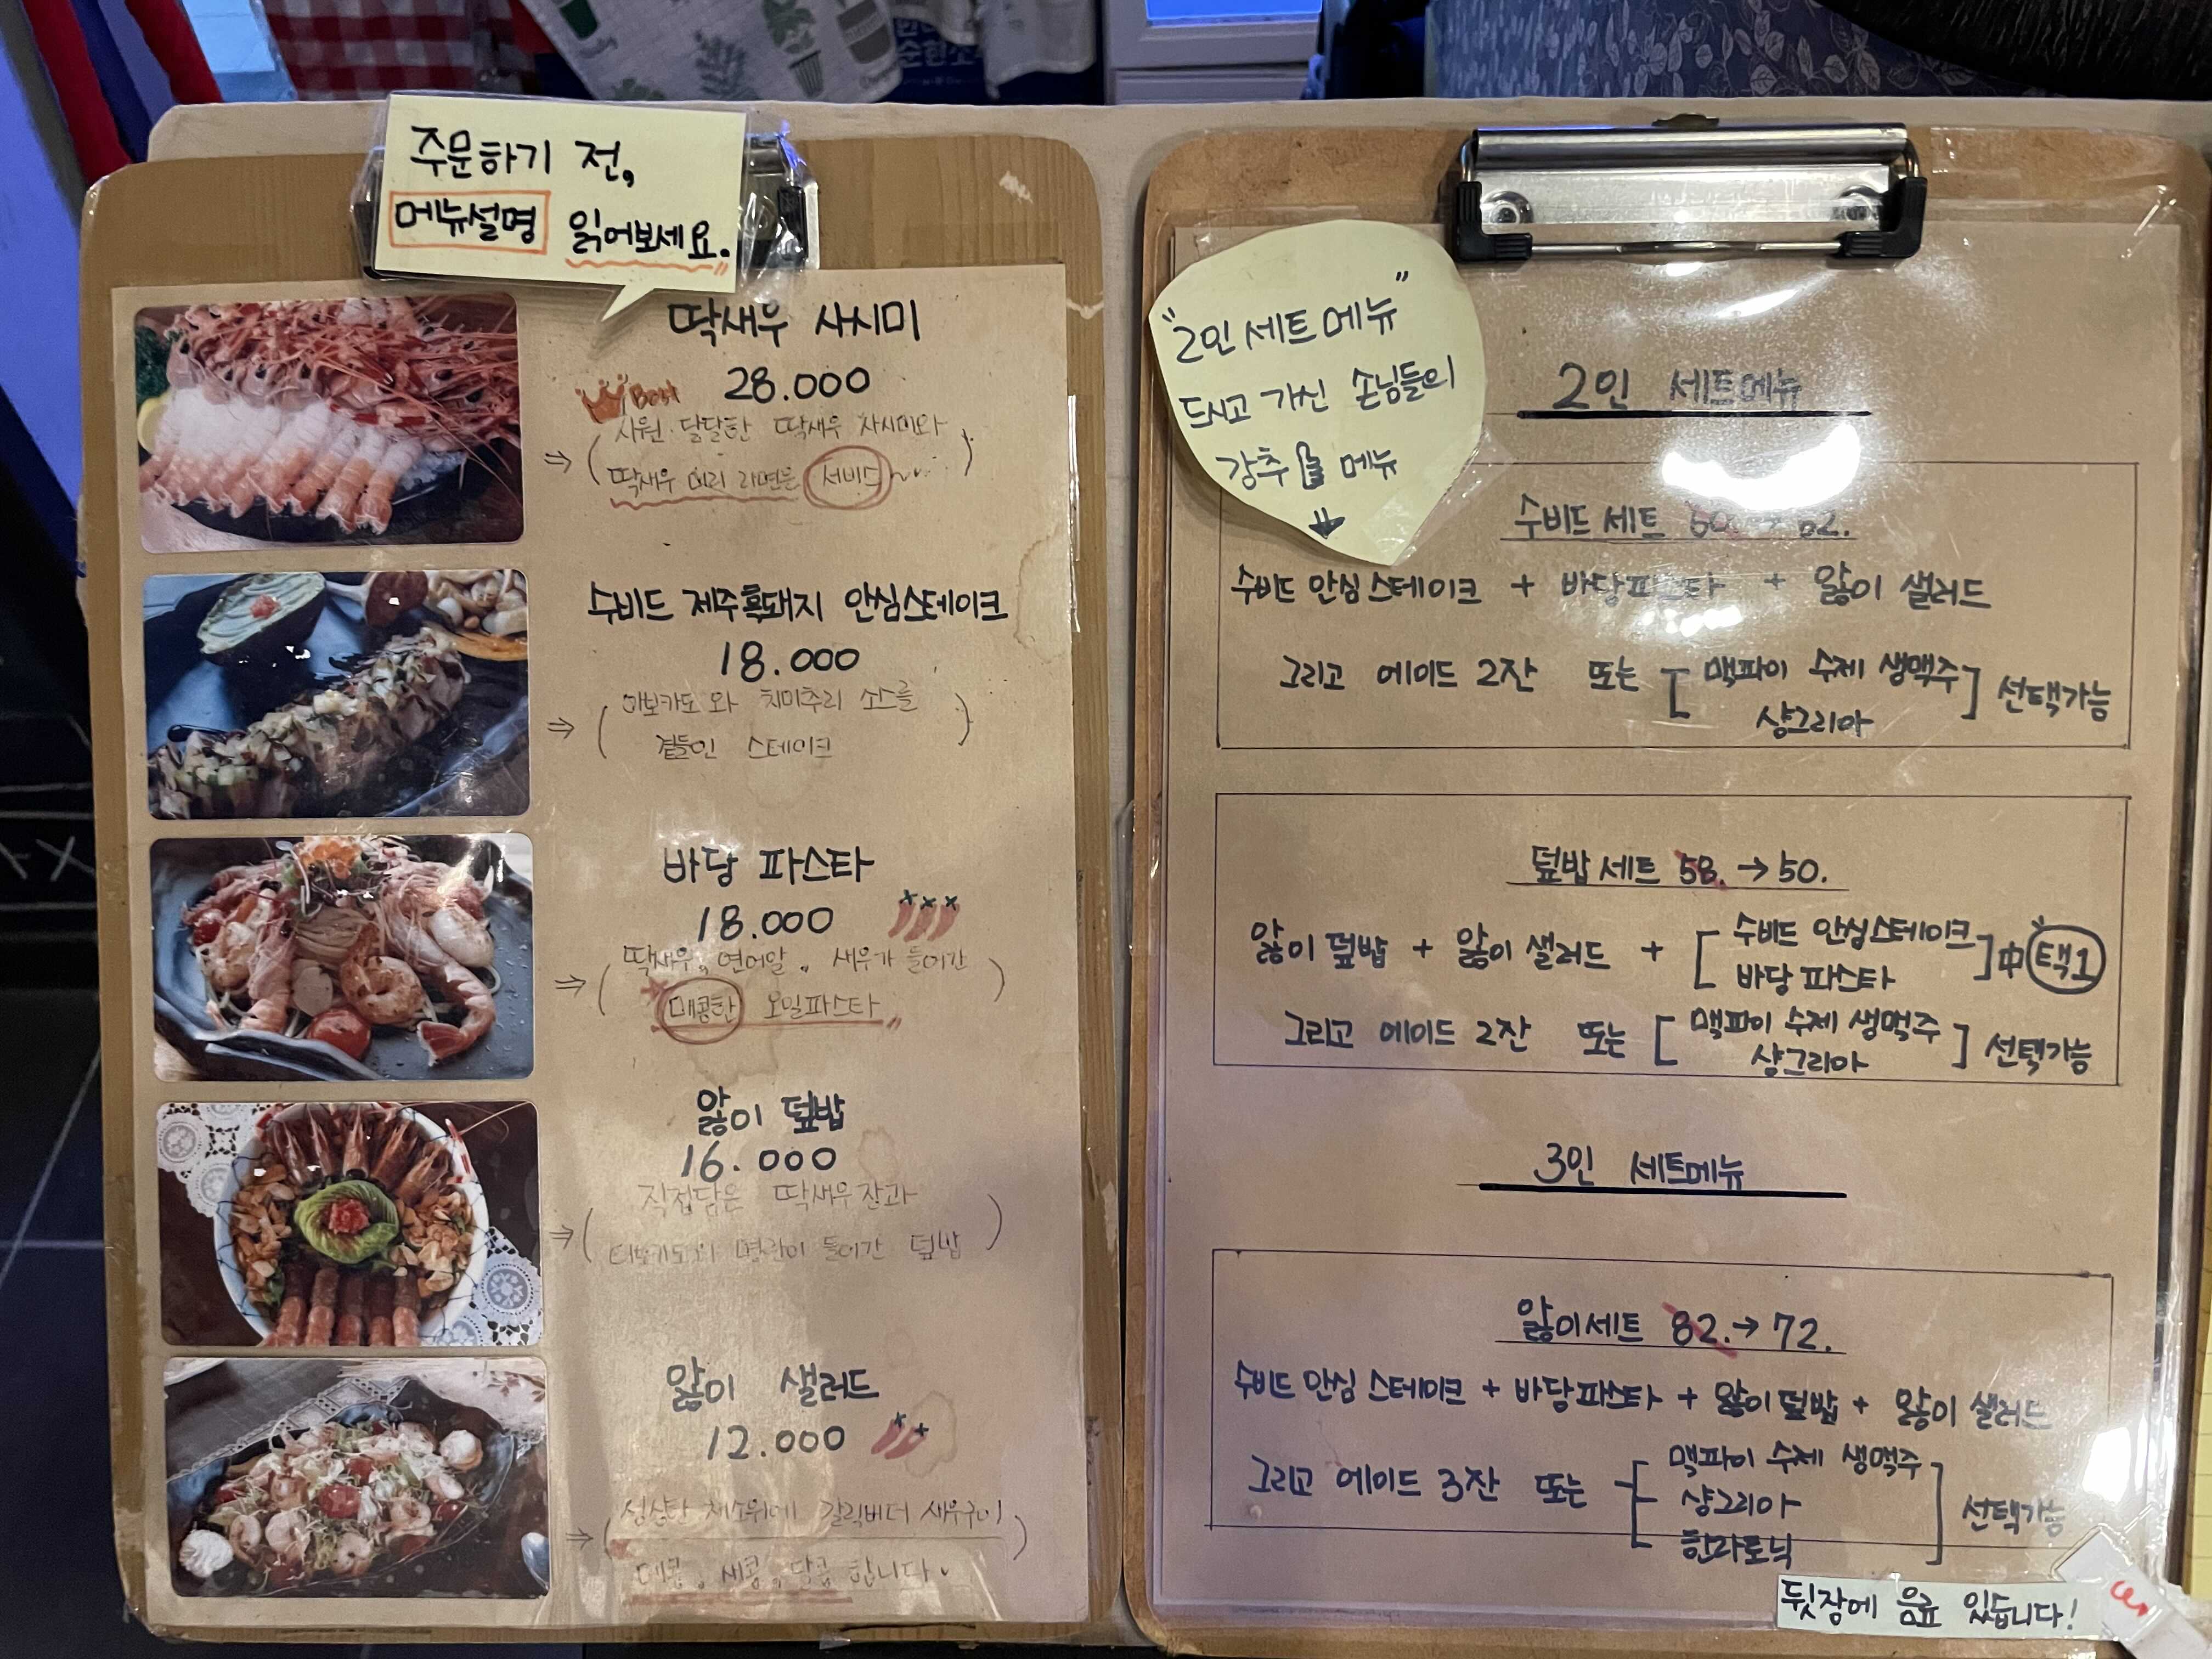 주문하기 전,
메뉴설명 읽어보세요.
딱새우 사시미
28.000
Best
시원·달달한 딱새우 사시미와
딱새우 머리 라면은 서비스
수비드 제주흑돼지 안심스테이크
18.000
아보카도와 치미추리 소스를
곁들인 스테이크
바당 파스타
18.000
딱새우, 연어알, 새우가 들어간
매콤한 오일파스타
앓이 덮밥
16.000
직접담은 딱새우장과
명란이 들어간 덮밥
앓이 샐러드
12.000
싱싱한 채소위에 갈릭버터 새우구이
매콤, 새콤, 달콤 합니다.
"2인 세트메뉴"
드시고 가신 손님들의
강추 메뉴
2인 세트메뉴
수비드 세트
수비드 안심스테이크 + 바당파스타 + 앓이 샐러드
그리고 에이드 2잔 또는 [맥파이 수제 생맥주
샹그리아] 선택가능
덮밥 세트 58. → 50.
앓이 덮밥 + 앓이 샐러드 + [수비드 안심스테이크
바당 파스타] 中 택1
그리고 에이드 2잔 또는 [맥파이 수제 생맥주
샹그리아] 선택가능
3인 세트메뉴
앓이세트 82. → 72.
수비드 안심 스테이크 + 바당파스타 + 앓이덮밥 + 앓이 샐러드
그리고 에이드 3잔 또는 [맥파이 수제 생맥주
샹그리아
한라토닉] 선택가능
뒷장에 음료 있습니다!